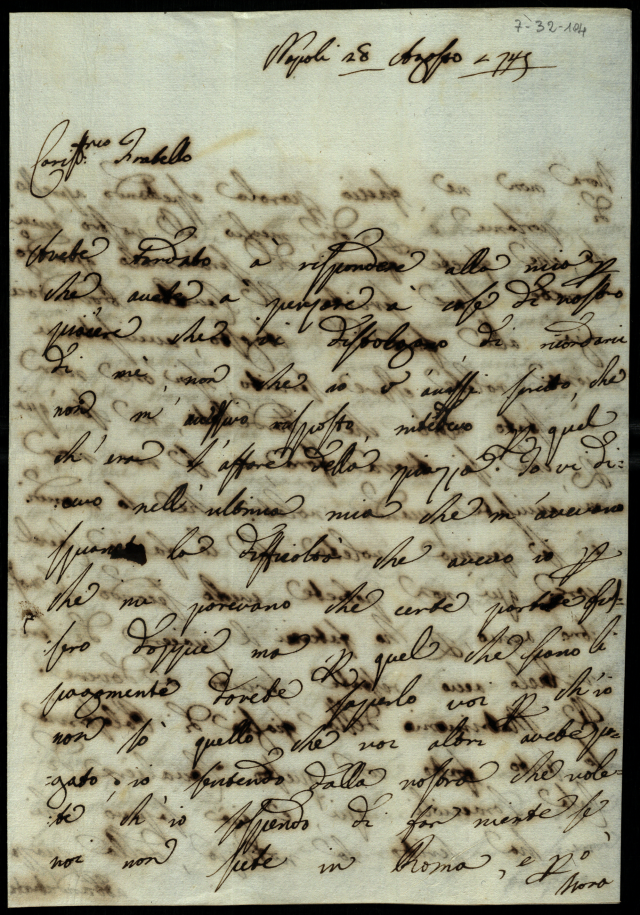 7-32-104
Napoli 28 Agosto 1745
Cariss.mo Fratello
Avete tardato a rispondere alla mia p
che avete a pensare a cose di vostro
piacere che vi distolgano di ricordarvi
di me, non che io v'avessi scritto, che
non m' risposto, p quel
ch'era l'affare della piazza. Io vi di-
cevo nell'ultima mia che m'avevano
spianata la difficoltà che avevo io p
che mi parevano che certe partite fus-
sero doppie ma p quel che siano li
pagamenti dovete saperlo voi p ch'io
non so quello che voi altri avete pa-
gato, io sentendo dalla vostra che vole-
te ch'io sospendo di far niente se
voi non siete in Roma, e p.ò
stora